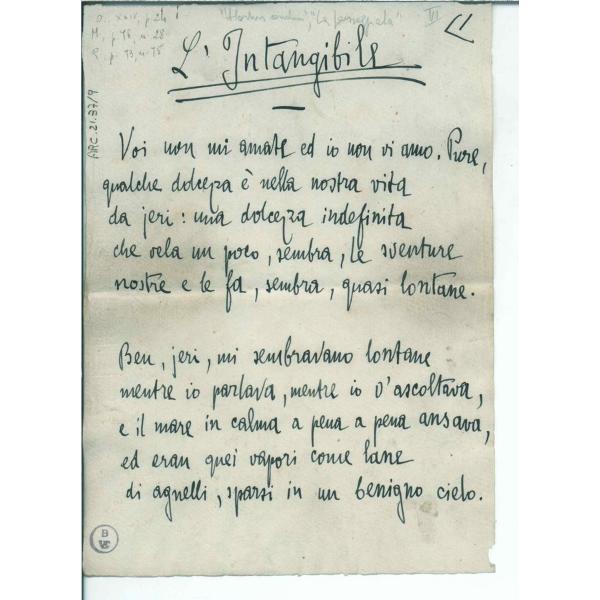 VI
L'Intangibile
ARC.21.37/9
Voi non mi amate ed io non vi amo. Pure,
qualche dolcezza è nella nostra vita
da jeri: una dolcezza indefinita
che vela un poco, sembra, le sventure
nostre e le fa, sembra, quasi lontane.
Ben, jeri, mi sembravano lontane
mentre io parlava, mentre io v'ascoltava,
e il mare in calma a pena a pena ansava,
ed eran quei vapori come lane
di agnelli, sparsi in un benigno cielo.